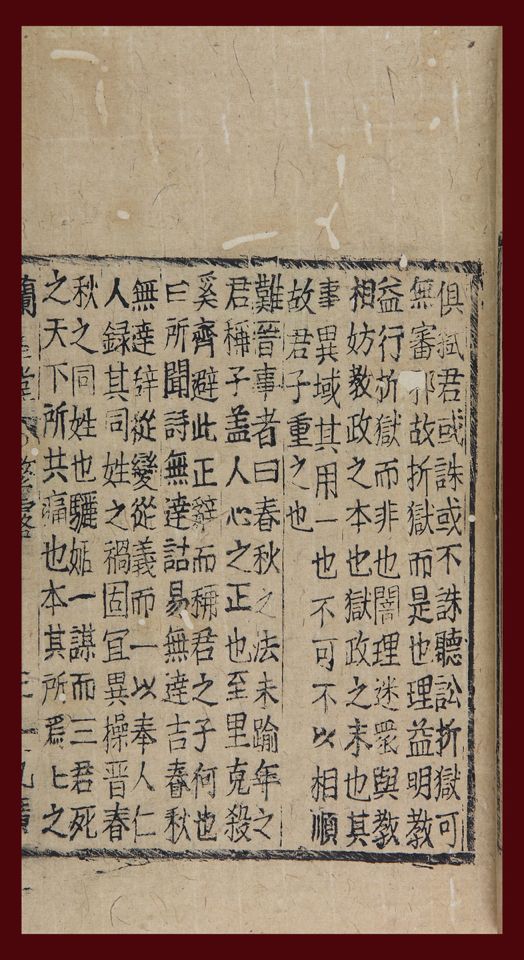 俱弑君或誅或不誅聽訟折獄可
無審邪故折獄而是也理益明教
益行折獄而非也闇理迷眾與教
相妨教政之本也獄政之末也其
事異域其用一也不可不以相順
故君子重之也
難晉事者曰春秋之法未踰年之
君稱子盖人心之正也至里克殺
奚齊避此正辭而稱君之子何也
曰所聞詩無達詁易無達吉春秋
無達辞從變從義而一以奉人仁
人録其同姓之禍固宜異操晋春
秋之同姓也驪姬一謀而三君死
之天下所共痛也本其所爲上之
蘭 堂